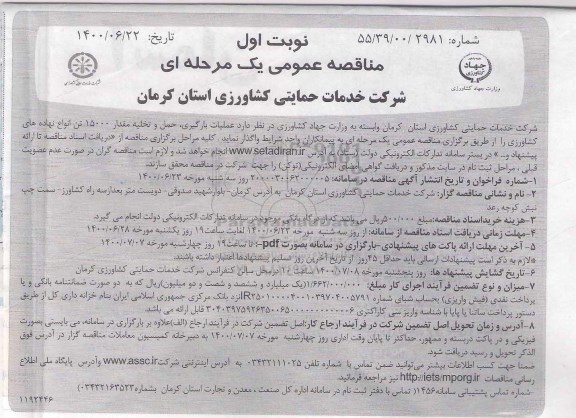 شماره: ۵۵/۳۹/۰۰/۲۹۸۱
تاریخ: ۱۴۰۰/۰۶/۲۲
نوبت اول
مناقصه عمومی یک مرحله ای
شرکت خدمات حمایتی کشاورزی استان کرمان
جهاد کشاورزی
وزارت جهاد کشاورزی
شرکت خدمات حمایتی کشاورزی استان کرمان وابسته به وزارت جهاد کشاورزی در نظر دارد عملیات بارگیری، حمل و تخلیه مقدار ۱۵۰۰۰ تن انواع نهاده های
کشاورزی را از طریق برگزاری مناقصه عمومی یک مرحله ای به پیمانکاران واجد شرایط واگذار نماید. کلیه مراحل برگزاری مناقصه از دریافت اسناد مناقصه تا ارائه
پیشنهاد و... در بستر سامانه تدارکات الکترونیکی دولت www.setadiran.ir انجام خواهد شد و لازم است مناقصه گران در صورت عدم عضویت
قبلی، مراحل ثبت نام در سایت مذکور و دریافت گواهی امضای الکترونیکی(توکن) را جهت شرکت در مناقصه محقق سازند.
۱-شماره فراخوان و تاریخ انتشار آگهی مناقصه در سامانه: روز سه شنبه مورخه ۱۴۰۰/۰۶/۲۳
۲- نام و نشانی مناقصه گزار: شرکت خدمات حمایتی کشاورزی استان کرمان به آدرس کرمان-بلوار شهید صدوقی- دویست متر بعد از سه راه کشاورز- سمت چپ
نبش کوچه رعد
۳-هزینه خرید اسناد مناقصه: مبلغ ۵۰۰/۰۰۰ ریال می باشد که از درگاه بانکی موجود در سامانه تدارکات الکترونیکی دولت انجام می گیرد.
۴-مهلت زمانی دریافت اسناد مناقصه از سامانه: از روز سه شنبه مورخه ۱۴۰۰/۰۶/۲۳ لغایت ساعت ۱۹ روز یکشنبه مورخه ۱۴۰۰/۰۶/۲۸
۵- آخرین مهلت ارائه پاکت های پیشنهادی -بارگزاری در سامانه بصورت pdf- تا ساعت ۱۹ روز چهارشنبه مورخه ۱۴۰۰/۰۷/۰۷
لازم به ذکر است پیشنهادات ارسالی باید حداقل ۴۵ روز از تاریخ آخرین روز تسلیم پیشنهادها اعتبار داشته باشند.
۶-تاریخ گشایش پیشنهاد ها: روز پنجشنبه مورخه ۱۴۰۰/۰۷/۰۸ ساعت در محل سالن کنفرانس شرکت خدمات حمایتی کشاورزی کرمان
۷-میزان و نوع تضمین فرآیند اجرای کار مبلغ: ۱/۶۶۲/۰۰۰/۰۰۰ (یک میلیارد و ششصد و شصت و دو میلیون) ریال که به دو صورت ضمانتنامه بانکی و یا
پرداخت نقدی (فیش واریزی) بحساب شبای شماره نزد بانک مرکزی جمهوری اسلامی ایران بنام خزانه داری کل از طریق
دستور پرداخت ساتنا یا پایا با شناسه واریز سی کاراکتری قابل ارائه می باشد.
۸-آدرس و زمان تحویل اصل تضمین شرکت در فرآیند ارجاع کار: اصل تضمین شرکت در فرآیند ارجاع (الف) علاوه بر بارگزاری در سامانه، می بایستی بصورت
فیزیکی و در پاکت دربسته و ممهور، حداکثر تا پایان وقت اداری روز چهارشنبه مورخه ۱۴۰۰/۰۷/۰۷ به دبیرخانه کمیسیون معاملات مناقصه گزار در آدرس فوق
الذکر تحویل و رسید دریافت شود.
ضمنا جهت کسب اطلاعات بیشتر می توانید ضمن تماس با شماره تلفن ۰۳۴۳۲۱۱۱۰۲۵ به آدرس اینترنتی شرکت www.assc.ir وآدرس پایگاه ملی اطلاع
رسانی مناقصات http://iets/mporg.ir نیز مراجعه فرمائید.
-شماره تماس پشتیبانی سامانه ۱۴۵۶ تماس با دفتر ثبت نام در سامانه اداره کل صنعت ، معدن و تجارت استان کرمان بشماره (۰۳۴۳۲۱۶۳۵۲۳)
۱۱۹۲۴۴۶